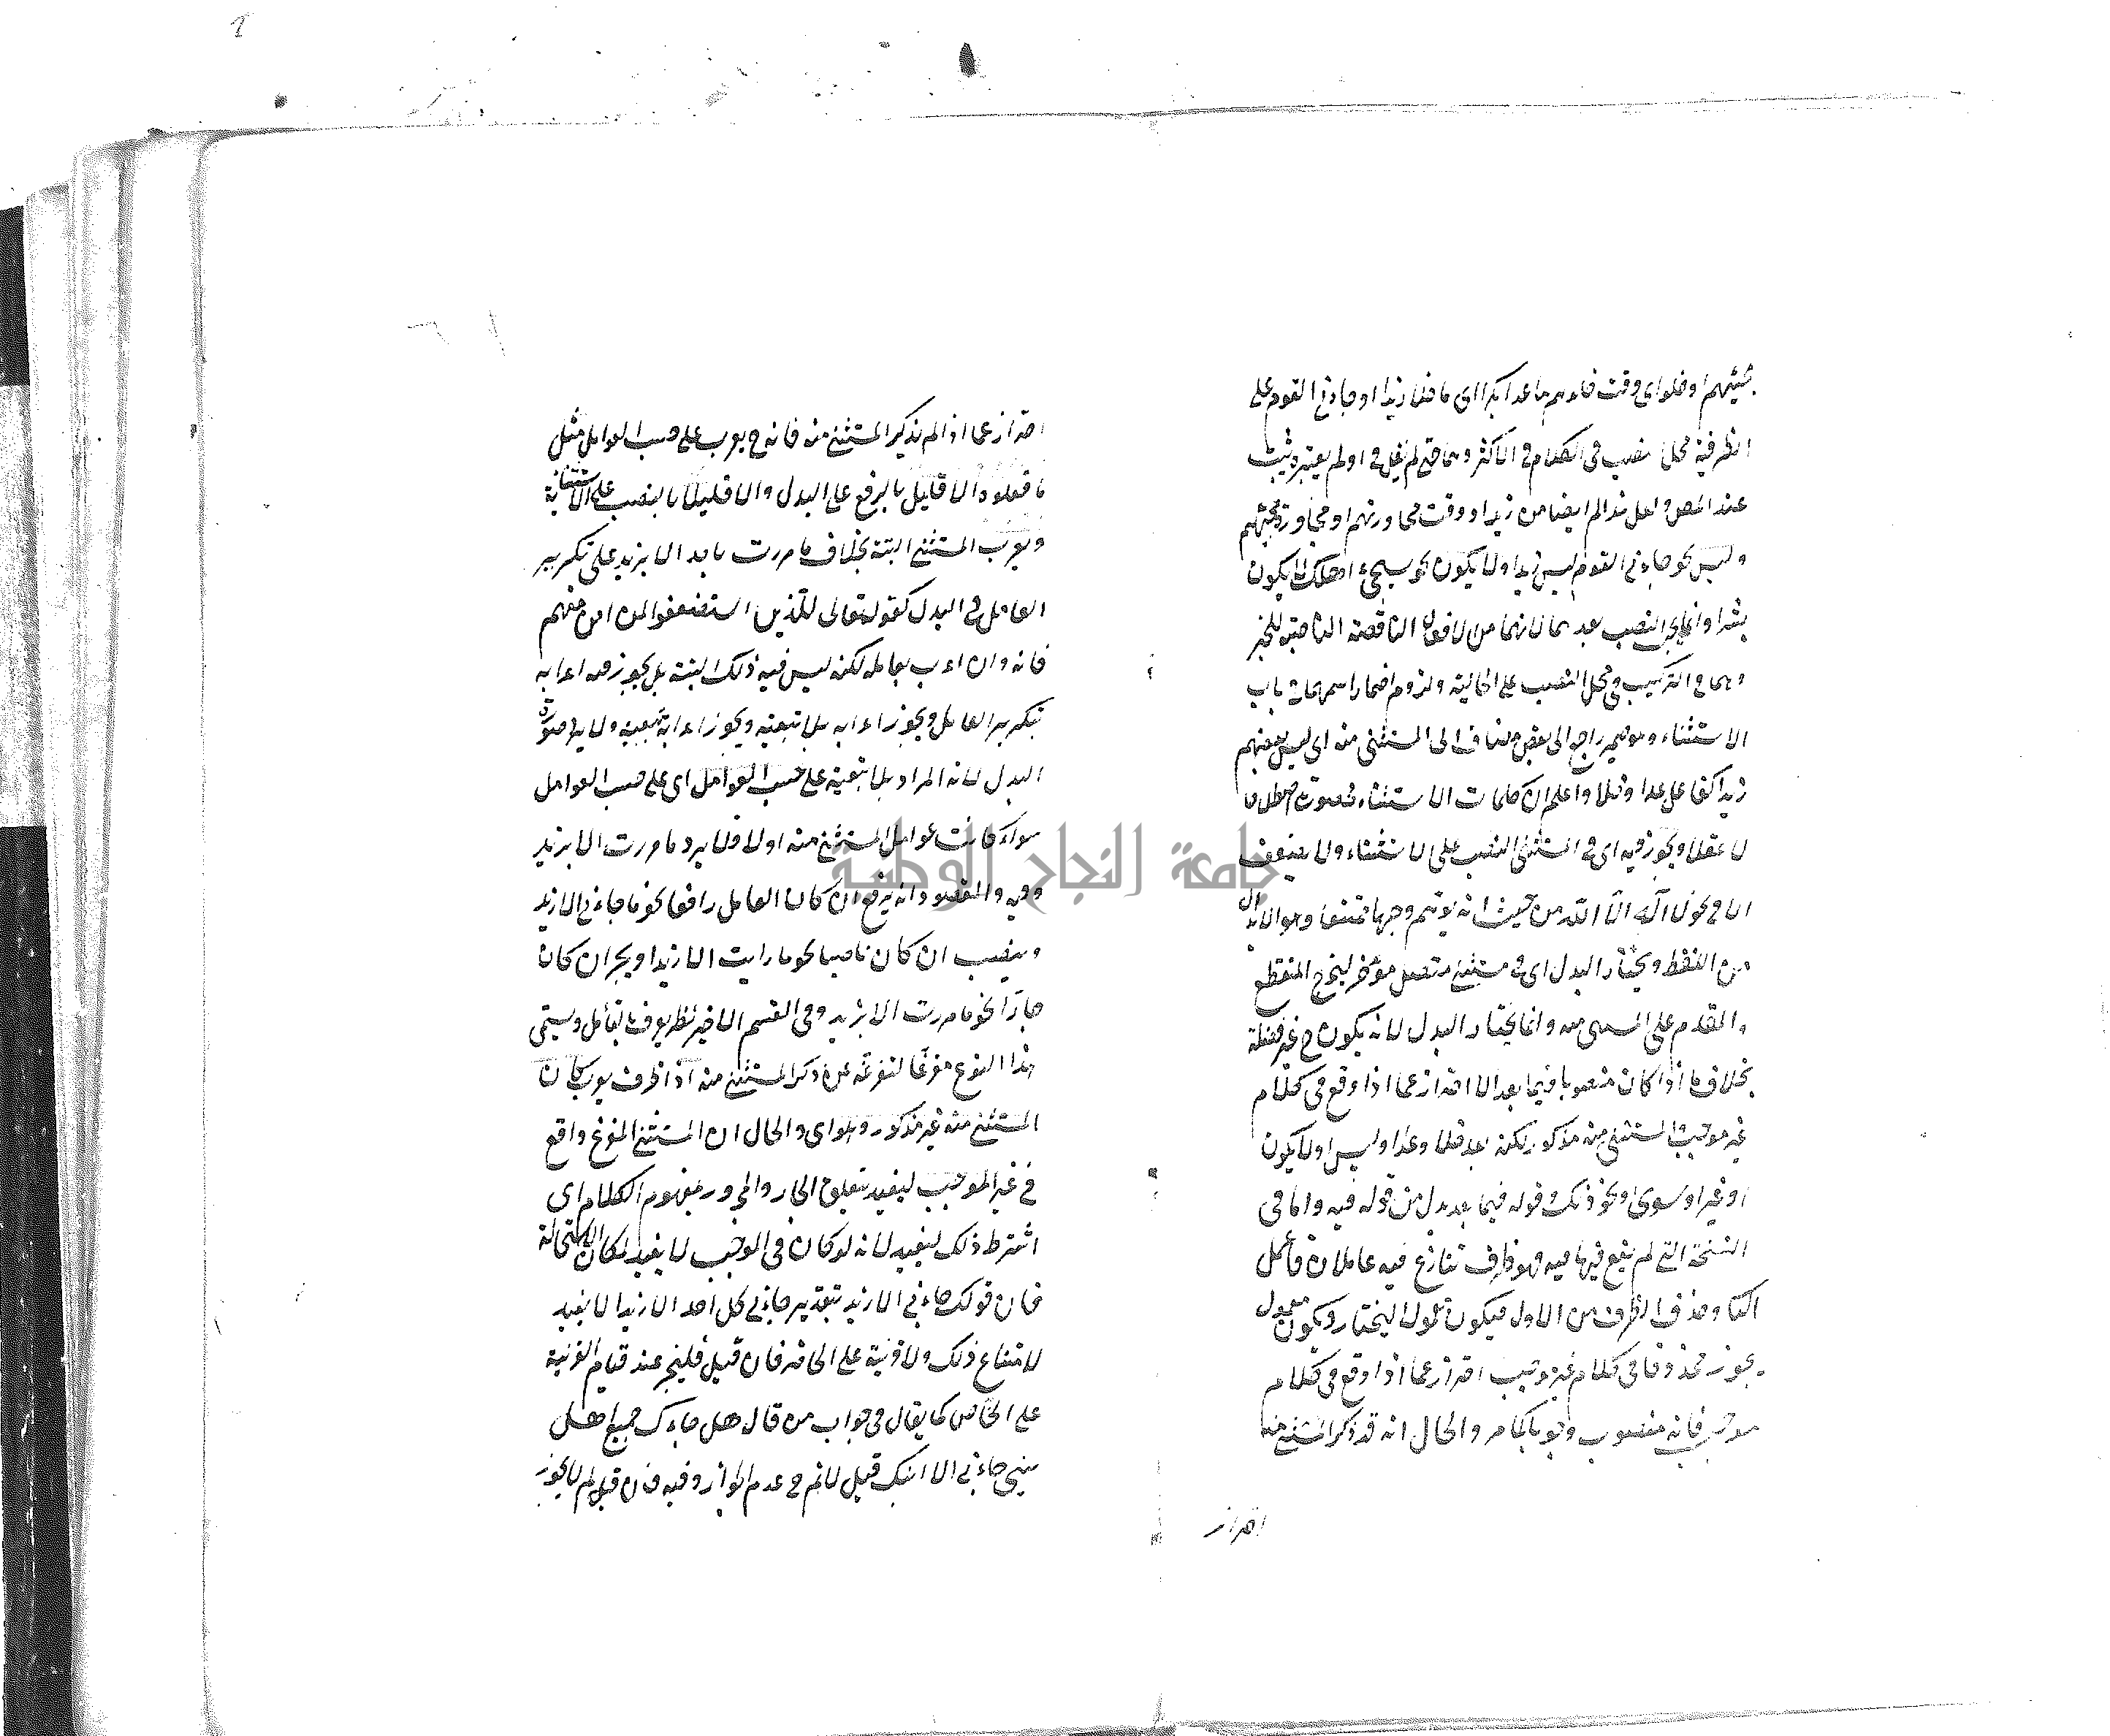 مجيئهم او خلوا اي وقت خلوهم ما عدا بكرا اي ما خلا زيدا او جاءني القوم على
الظرفية محلا نصب في الكلام في الاكثر وما قبح لم يقل في او لم يعتبره ليثبت
عند المص ولعل هذا لم ايضا من زيد او وقت مجاوزتهم او مجاوزة مجيئهم
وليس نحو جاءني القوم ليس زيدا ولا يكون نحو سيجيء اهلك لا يكون
بشرا وانما يجب النصب بعدهما لانهما من الافعال الناقصة الناصبة للخبر
وهما في التركيب في محل النصب على الحالية ولزوم اضمار اسمهما في باب
الاستثناء وهو ضمير راجع الى بعض مضاف الى المستثنى منه اي ليس بعضهم
زيدا كفاعل عدا وخلا واعلم ان كلمات الاستثناء
لا عقلا ويجوز فيه اي في المستثنى النصب على الاستثناء ولا يضعف
الا في نحو لا اله الا الله من حيث انه يوهم وجها ممتنعا وهو الابدال
من اللفظ ويختار البدل اي في مستثنى متصل مؤخر ليخرج المنقطع
والمقدم على المستثنى منه وانما يختار البدل لانه يكون ح غير فضلة
بخلاف ما اذا كان منصوبا فيما بعد الا احتراز عما اذا وقع في كلام
غير موجب والمستثنى منه مذكور لكنه بعد خلا وعدا وليس ولا يكون
او غير او سوى ونحو ذلك وقوله فيما بعد بدل من قوله فيه واما في
النسخة التي لم يقع فيها فيه فهو ظرف تنازع فيه عاملان فاعمل
الثاني وحذف الظرف من الاول فيكون معمول ليختار ويكون معمول
يجوز محذوفا في كلام غير موجب احتراز عما اذا وقع في كلام
موجب فانه منصوب وجوبا كما مر والحال انه قد ذكر المستثنى منه
احتراز
احتراز عما اذا لم يذكر المستثنى منه فانه ح يعرب على حسب العوامل مثل
ما فعلوه الا قليل بالرفع على البدل والا قليلا بالنصب على الاستثنائية
ويعرب المستثنى البتة بخلاف ما مررت باحد الا بزيد على تكرير
العامل في البدل كقوله تعالى للذين استضعفوا لمن امن منهم
فانه وان اعرب بعامله لكنه ليس فيه ذلك البتة بل يجوز فيه اعرابه
بتكرير العامل ويجوز اعرابه بلا تبعية ويجوز اعرابه بتبعية ولا يرد صورة
البدل لانه المراد بلا تبعية على حسب العوامل اي على حسب العوامل
سواء كانت عوامل المستثنى منه اولا فلا يرد ما مررت الا بزيد
وفيه والمقصود انه يرفع ان كان العامل رافعا نحو ما جاءني الا زيد
وينصب ان كان ناصبا نحو ما رايت الا زيدا ويجر ان كان
جارا نحو ما مررت الا بزيد وفي القسم الاخير نظر يعرف بالتأمل ويسمى
هذا النوع مفرغا لتفرغه عن ذكر المستثنى منه اذا ظرف يعرب كان
المستثنى منه غير مذكور وهو اي والحال ان المستثنى المفرغ واقع
في غير الموجب ليفيد يتعلق الجار والمجرور بمفهوم الكلام اي
اشترط ذلك ليفيد لانه لو كان في الموجب لا يفيد لمكان الاستحالة
فان قولك جاءني الا زيد بتقدير جاءني كل احد الا زيدا لا يفيد
لامتناع ذلك ولا قرينة على الخاص فان قيل فليجز عند قيام القرينة
على الخاص كما يقال في جواب من قال هل جاءك جميع اهل
بيتي جاءني الا ابنك قيل لا نم ح عدم الجواز وفيه فان قيل لم لا يجوز
جامعة النجاح الوطنية